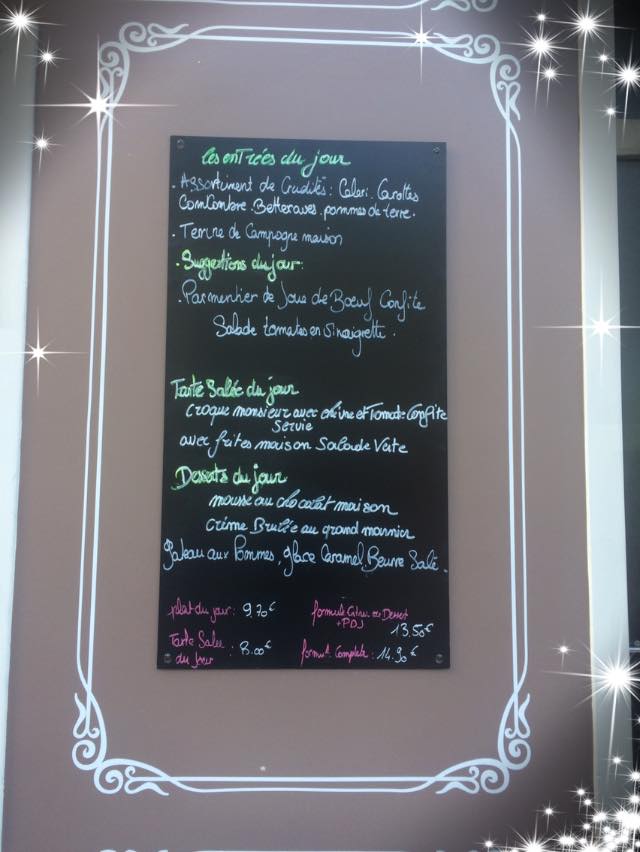 les enTrées du jour
. Assortiment de Crudités: Celeri. Carottes
ComCombre. Betteraves. pommes de terre.
. Terrine de Campagne maison
. Suggestions du jour:
. Parmentier de Joue de Boeuf Confite
Salade tomates en Vinaigrette.
Tarte Salée du jour
Croque monsieur avec chèvre et Tomate Confite
Servie
avec frites maison Salade Verte
Desserts du jour
mousse au chocolat maison
Crème Brulée au grand marnier
Gateau aux Pommes, glace Caramel Beurre Salé.
plat du jour: 9.70€
Tarte Salée
du jour : 8.00€
formule Entrée ou Dessert
+ PDJ
13.50€
formule Complète: 14.90€